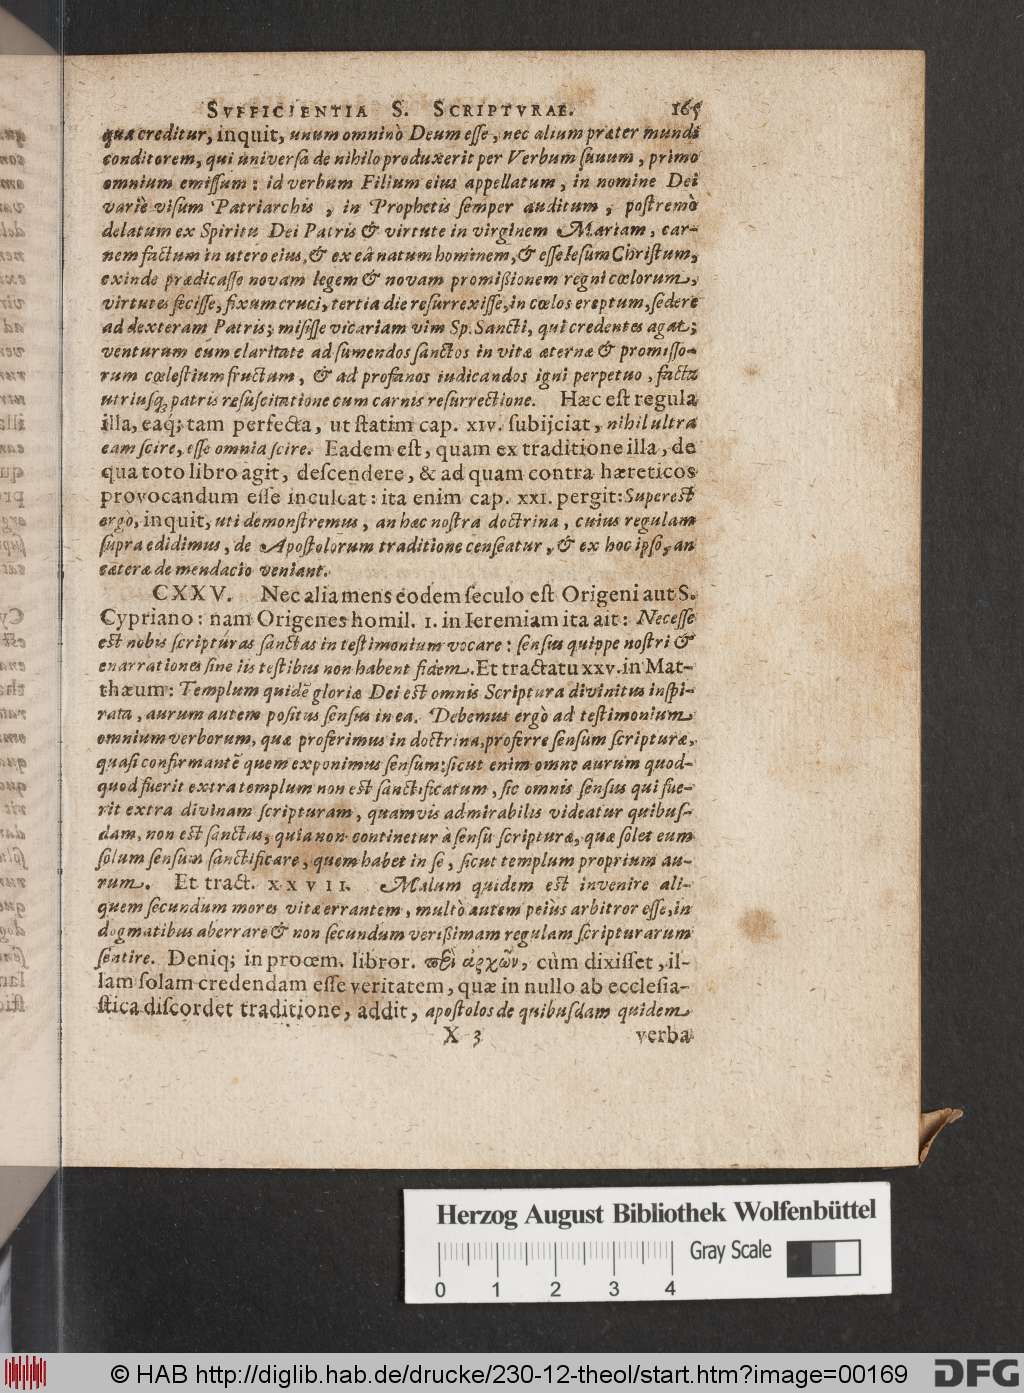 SVFFICIENTIA S. SCRIPTVRAE. 165
qua creditur, inquit, unum omninò Deum eſſe, nec alium præter mundi
conditorem, qui univerſa de nihilo produxerit per Verbum ſuum, primo
omnium emiſſum: id verbum Filium eius appellatum, in nomine Dei
variè viſum Patriarchis, in Prophetis ſemper auditum, poſtremò
delatum ex Spiritu Dei Patris & virtute in virginem Mariam, car-
nem factum in utero eius, & ex eâ natum hominem, & eſſe Ieſum Chriſtum,
exinde prædicaſſe novam legem & novam promißionem regni cœlorum,
virtutes feciſſe, fixum cruci, tertia die reſurrexiſſe, in cœlos ereptum, ſedere
ad dexteram Patris; miſiſſe vicariam vim Sp. Sancti, qui credentes agat;
venturum cum claritate ad ſumendos ſanctos in vitæ æternæ & promiſſo-
rum cœleſtium fructum, & ad profanos iudicandos igni perpetuo, facta
utriusq; patris reſuſcitatione cum carnis reſurrectione. Hæc eſt regula
illa, eaq́; tam perfecta, ut ſtatim cap. XIV. ſubijciat, nihil ultra
eam ſcire, eſſe omnia ſcire. Eadem eſt, quam ex traditione illa, de
qua toto libro agit, deſcendere, & ad quam contra hæreticos
provocandum eſſe inculcat: ita enim cap. XXI. pergit: Supereſt
ergò, inquit, uti demonſtremus, an hæc noſtra doctrina, cuius regulam
ſupra edidimus, de Apoſtolorum traditione cenſeatur, & ex hoc ipſo, an
cæteræ de mendacio veniant.
CXXV. Nec alia mens eodem ſeculo eſt Origeni aut S.
Cypriano: nam Origenes homil. 1. in Ieremiam ita ait: Neceſſe
eſt nobis ſcripturas ſanctas in teſtimonium vocare: ſenſus quippe noſtri &
enarrationes ſine iis teſtibus non habent fidem. Et tractatu XXV. in Mat-
thæum: Templum quidē gloriæ Dei eſt omnis Scriptura divinitus inſpi-
rata, aurum autem poſitus ſenſus in ea. Debemus ergò ad teſtimonium
omnium verborum, quæ proferimus in doctrina, proferre ſenſum ſcripturæ,
quaſi confirmantē quem exponimus ſenſum: ſicut enim omne aurum quod-
quod fuerit extra templum non eſt ſanctificatum, ſic omnis ſenſus qui fue-
rit extra divinam ſcripturam, quamvis admirabilis videatur quibuſ-
dam, non eſt ſanctus, quia non continetur à ſenſu ſcripturæ, quæ ſolet eum
ſolum ſenſum ſanctificare, quem habet in ſe, ſicut templum proprium au-
rum. Et tract. XXVII. Malum quidem eſt invenire ali-
quem ſecundum mores vitæ errantem, multò autem peiùs arbitror eſſe, in
dogmatibus aberrare & non ſecundum verißimam regulam ſcripturarum
ſentire. Deniq; in procœm. libror. περὶ ἀρχῶν, cùm dixiſſet, il-
lam ſolam credendam eſſe veritatem, quæ in nullo ab eccleſia-
ſtica diſcordet traditione, addit, apoſtolos de quibuſdam quidem
X 3 verba
Herzog August Bibliothek Wolfenbüttel
Gray Scale
0 1 2 3 4
© HAB http://diglib.hab.de/drucke/230-12-theol/start.htm?image=00169
DFG